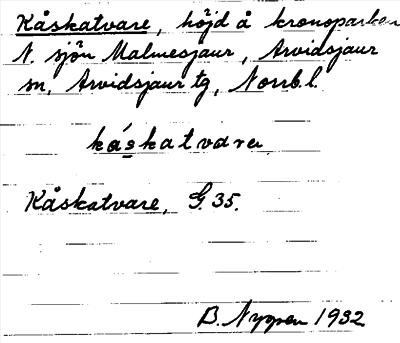 Kåskatvare, höjd å kronoparken
N. sjön Malmesjaur, Arvidsjaur
sn, Arvidsjaur tg, Norrb.l.
káskatvárɛ
Kåskatvare, G.35.
B. Nygren 1932